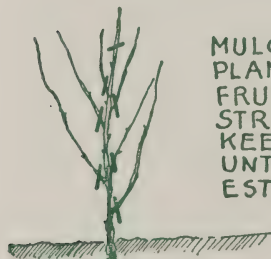 MULC
PLAN
FRU
STR
KEE
UNT
EST